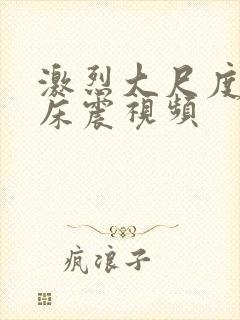 激烈大尺度
床震視頻
瘋浪子